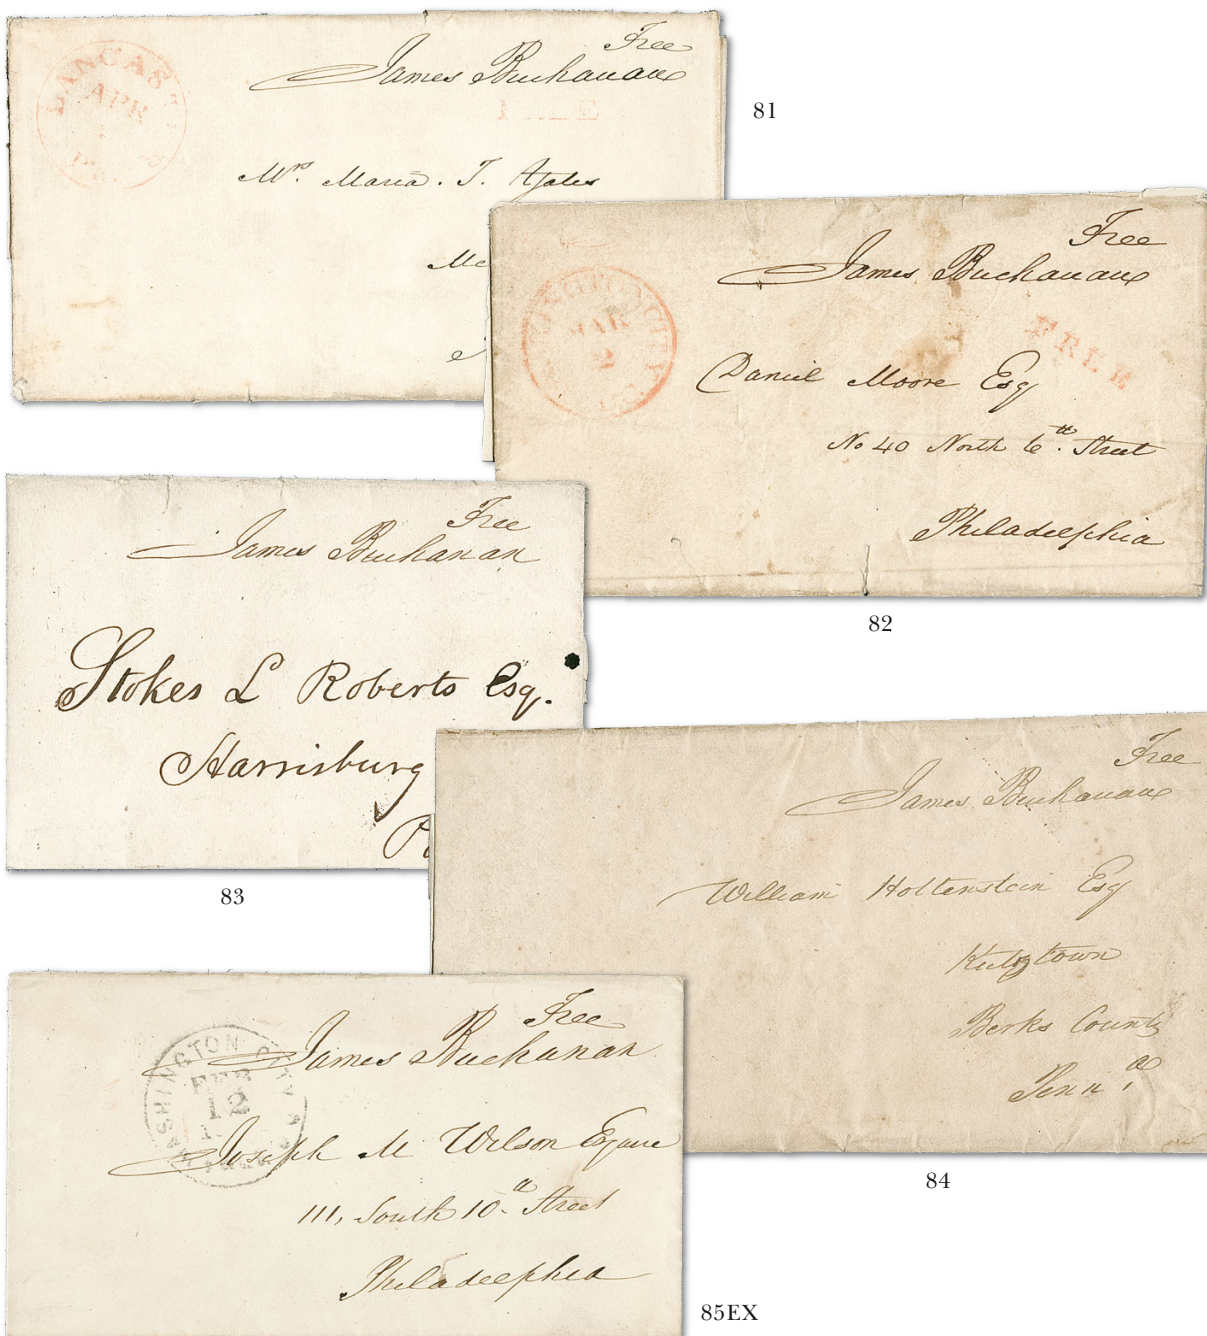 Free
James Buchanan
LANCAS
APR
Pa.
FREE
Mrs. Maria. T. Yales
81
Free
James Buchanan
INGTON CITY
MAR
2
FREE
Daniel Moore Esq
No 40 North 6th. Street
Philadelphia
82
Free
James Buchanan
Stokes L Roberts Esq.
Harrisburg
83
Free
James Buchanan
William Holtenstein Esq
Kutztown
Berks County
Penna.
84
Free
James Buchanan
WASHINGTON CITY
FEB
12
Joseph M Wilson Esquire
111, South 10th Street
Philadelphia
85EX